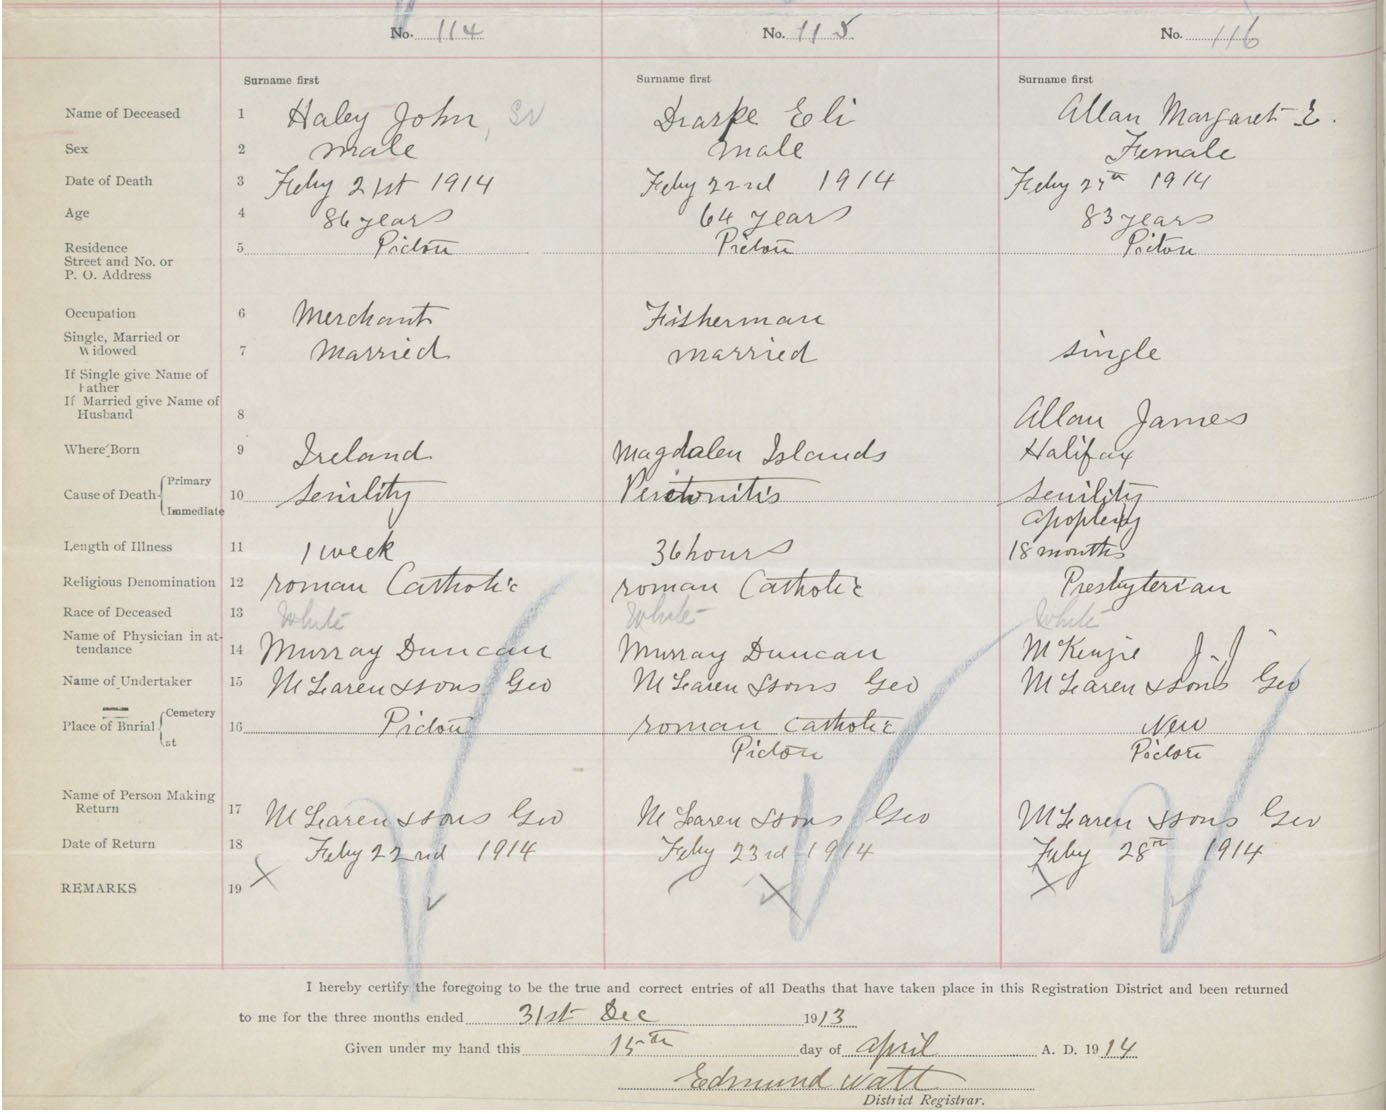 No. 114 No. 115 No. 116
Surname first Surname first Surname first
Name of Deceased 1 Haley John, Sr Drarpe Eli Allan Margaret E.
Sex 2 male male Female
Date of Death 3 Feby 21st 1914 Feby 22nd 1914 Feby 27th 1914
Age 4 86 years 64 years 83 years
Residence 5 Pictou Pictou Pictou
Street and No. or
P. O. Address
Occupation 6 Merchant Fisherman
Single, Married or
Widowed 7 Married married single
If Single give Name of
Father
If Married give Name of
Husband 8 Allan James
Where Born 9 Ireland Magdalen Islands Halifax
Cause of Death { Primary 10 Senility Peritonitis Senility
Immediate apoplexy
Length of Illness 11 1 week 36 hours 18 months
Religious Denomination 12 roman Catholic roman Catholic Presbyterian
Race of Deceased 13 White White White
Name of Physician in at-
tendance 14 Murray Duncan Murray Duncan McKenzie J. J.
Name of Undertaker 15 McLaren & sons Geo McLaren & sons Geo McLaren & sons Geo
Place of Burial { Cemetery 16 Pictou roman Catholic New
st Pictou Pictou
Name of Person Making
Return 17 McLaren & sons Geo McLaren & sons Geo McLaren & sons Geo
Date of Return 18 Feby 22nd 1914 Feby 23rd 1914 Feby 28th 1914
REMARKS 19
I hereby certify the foregoing to be the true and correct entries of all Deaths that have taken place in this Registration District and been returned
to me for the three months ended 31st Dec 1913
Given under my hand this 15th day of april A. D. 1914
Edmund Watt
District Registrar.